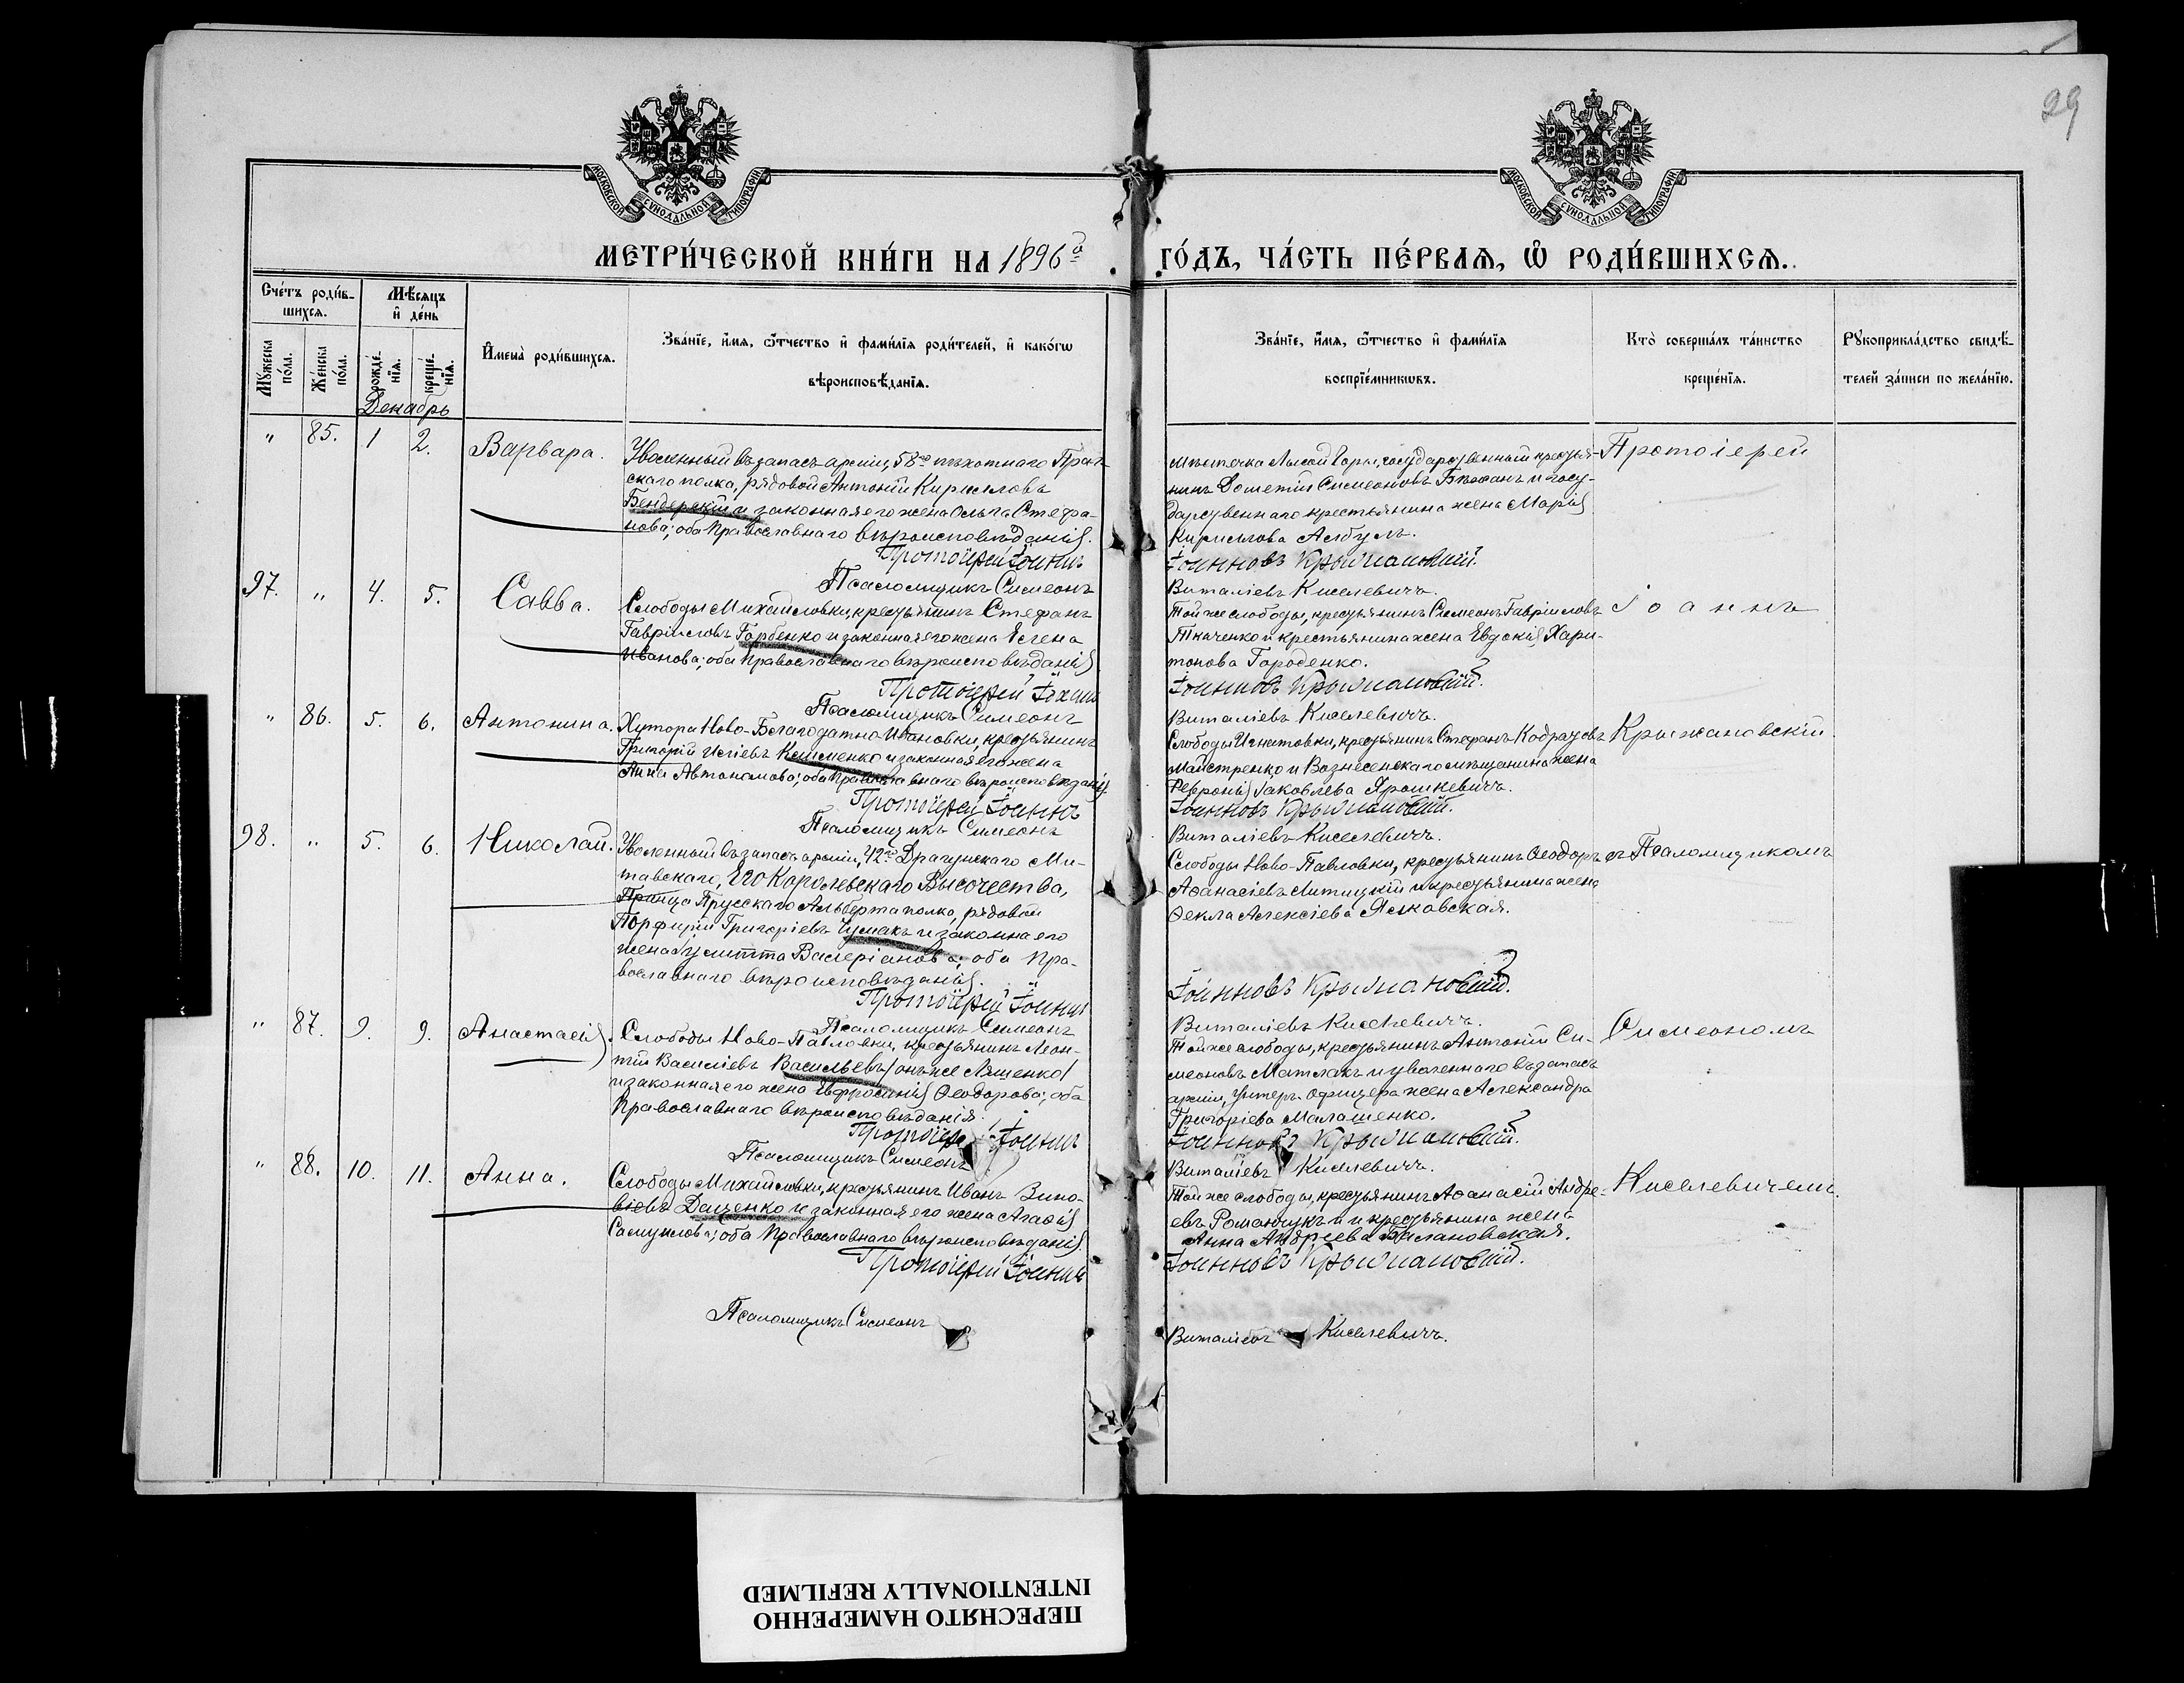 29
МОСКОВСКОЙ СУНОДАЛЬНОЙ ТИПОГРАФІИ
МОСКОВСКОЙ СУНОДАЛЬНОЙ ТИПОГРАФІИ
МЕТРИ́ЧЕСКОЙ КНИ́ГИ НА 1896й
ГО́ДЪ, ЧА́СТЬ ПЕ́РВАѦ, Ѡ РОДИ́ВШИХСѦ.
Сче́тъ роди́в-
шихся.
Мѣ́сяцъ
и де́нь
Мꙋжеска по́ла.
Же́нска по́ла.
рожде́-
нїя.
креще́-
нїя.
Имена̀ роди́вшихся.
Зва́нїе, и́мя, ѻ́тчество и фами́лїя роди́телей, и како́гѡ
вѣроисповѣ́данїя.
Зва́нїе, и́мя, ѻ́тчество и фами́лїя
воспрїе́мникѡвъ.
Кто̀ соверша́лъ та́инство
креще́нїя.
Рꙋкоприкла́дство свидѣ́-
телей за́писи по жела́нїю.
Декабрь
" 85. 1 2. Варвара.
Уволенный въ запасъ арміи, 58го пѣхотнаго Праг-
скаго полка, рядовой Антоній Кирилловъ
Бендерскій и законная его жена Ольга Стефа-
нова; оба православнаго вѣроисповѣданія.
Протоіерей Іоаннъ
Псаломщикъ Симеонъ
Мѣстечка Лысой Горы, государственный крестья-
нинъ Дометій Симеоновъ и госу-
дарственнаго крестьянина жена Марія
Кириллова Албулъ.
Іоанновъ Крыжановскій.
Виталіевъ Киселевичъ.
Протоіерей
97. " 4. 5. Савва.
Слободы Михайловки, крестьянинъ Стефанъ
Гавріиловъ Горбенко и законная его жена Елена
Иванова; оба православнаго вѣроисповѣданія
Протоіерей Іоаннъ
Псаломщикъ Симеонъ
Той же слободы, крестьянинъ Симеонъ Гавріиловъ
Ткаченко и крестьянина жена Евдокія Хари-
тонова Городенко.
Іоанновъ Крыжановскій.
Виталіевъ Киселевичъ.
Іоаннъ
" 86. 5. 6. Антонина.
Хутора Ново-Благодатно-Ивановки, крестьянинъ
Григорій Иліевъ Клименко и законная его жена
Анна Автономова; оба православнаго вѣроисповѣданія.
Протоіерей Іоаннъ
Псаломщикъ Симеонъ
Слободы Игнатовки, крестьянинъ Стефанъ Кодратовъ
Майстренко и Вознесенскаго мѣщанина жена
Февронія Іаковлева Ярошкевичъ.
Іоанновъ Крыжановскій.
Виталіевъ Киселевичъ.
Крыжановскій
98. " 5. 6. Николай.
Уволенный въ запасъ арміи, 42го Драгунскаго Ми-
тавскаго, Его Королевскаго Высочества,
Принца Прусскаго Альберта полка, рядовой
Порфирій Григоріевъ Чумакъ и законна его
жена Іулитта Валеріанова; оба пра-
вославнаго вѣроисповѣданія.
Протоіерей Іоаннъ
Псаломщикъ Симеонъ
Слободы Ново-Павловки, крестьянинъ Ѳеодоръ
Аѳанасіевъ Липицкій и крестьянина жена
Ѳекла Алексіева Ясковская.
Іоанновъ Крыжановскій.
Виталіевъ Киселевичъ.
съ Псаломщикомъ
" 87. 9. 9. Анастасія.
Слободы Ново-Павловки, крестьянинъ Леон-
тій Василіевъ Васильевъ (онъ же Ляшенко)
и законная его жена Евфросинія Ѳеодорова; оба
православнаго вѣроисповѣданія.
Протоіерей Іоаннъ
Псаломщикъ Симеонъ
Той же слободы, крестьянинъ Антоній Си-
меоновъ Матлакъ и уволеннаго въ запасъ
арміи, унтеръ-офицера жена Александра
Григоріева Малашенко.
Іоанновъ Крыжановскій.
Виталіевъ Киселевичъ.
Симеономъ
" 88. 10. 11. Анна.
Слободы Михайловки, крестьянинъ Иванъ Зино-
віевъ Даценко и законная его жена Агаѳія
Самуилова; оба православнаго вѣроисповѣданія.
Протоіерей Іоаннъ
Псаломщикъ Симеонъ
Той же слободы, крестьянинъ Аѳанасій Андре-
евъ Романчукъ и крестьянина жена
Анна Андреева Балановская.
Іоанновъ Крыжановскій.
Виталіевъ Киселевичъ.
Киселевичемъ.
ПЕРЕСНЯТО НАМЕРЕННО
INTENTIONALLY REFILMED